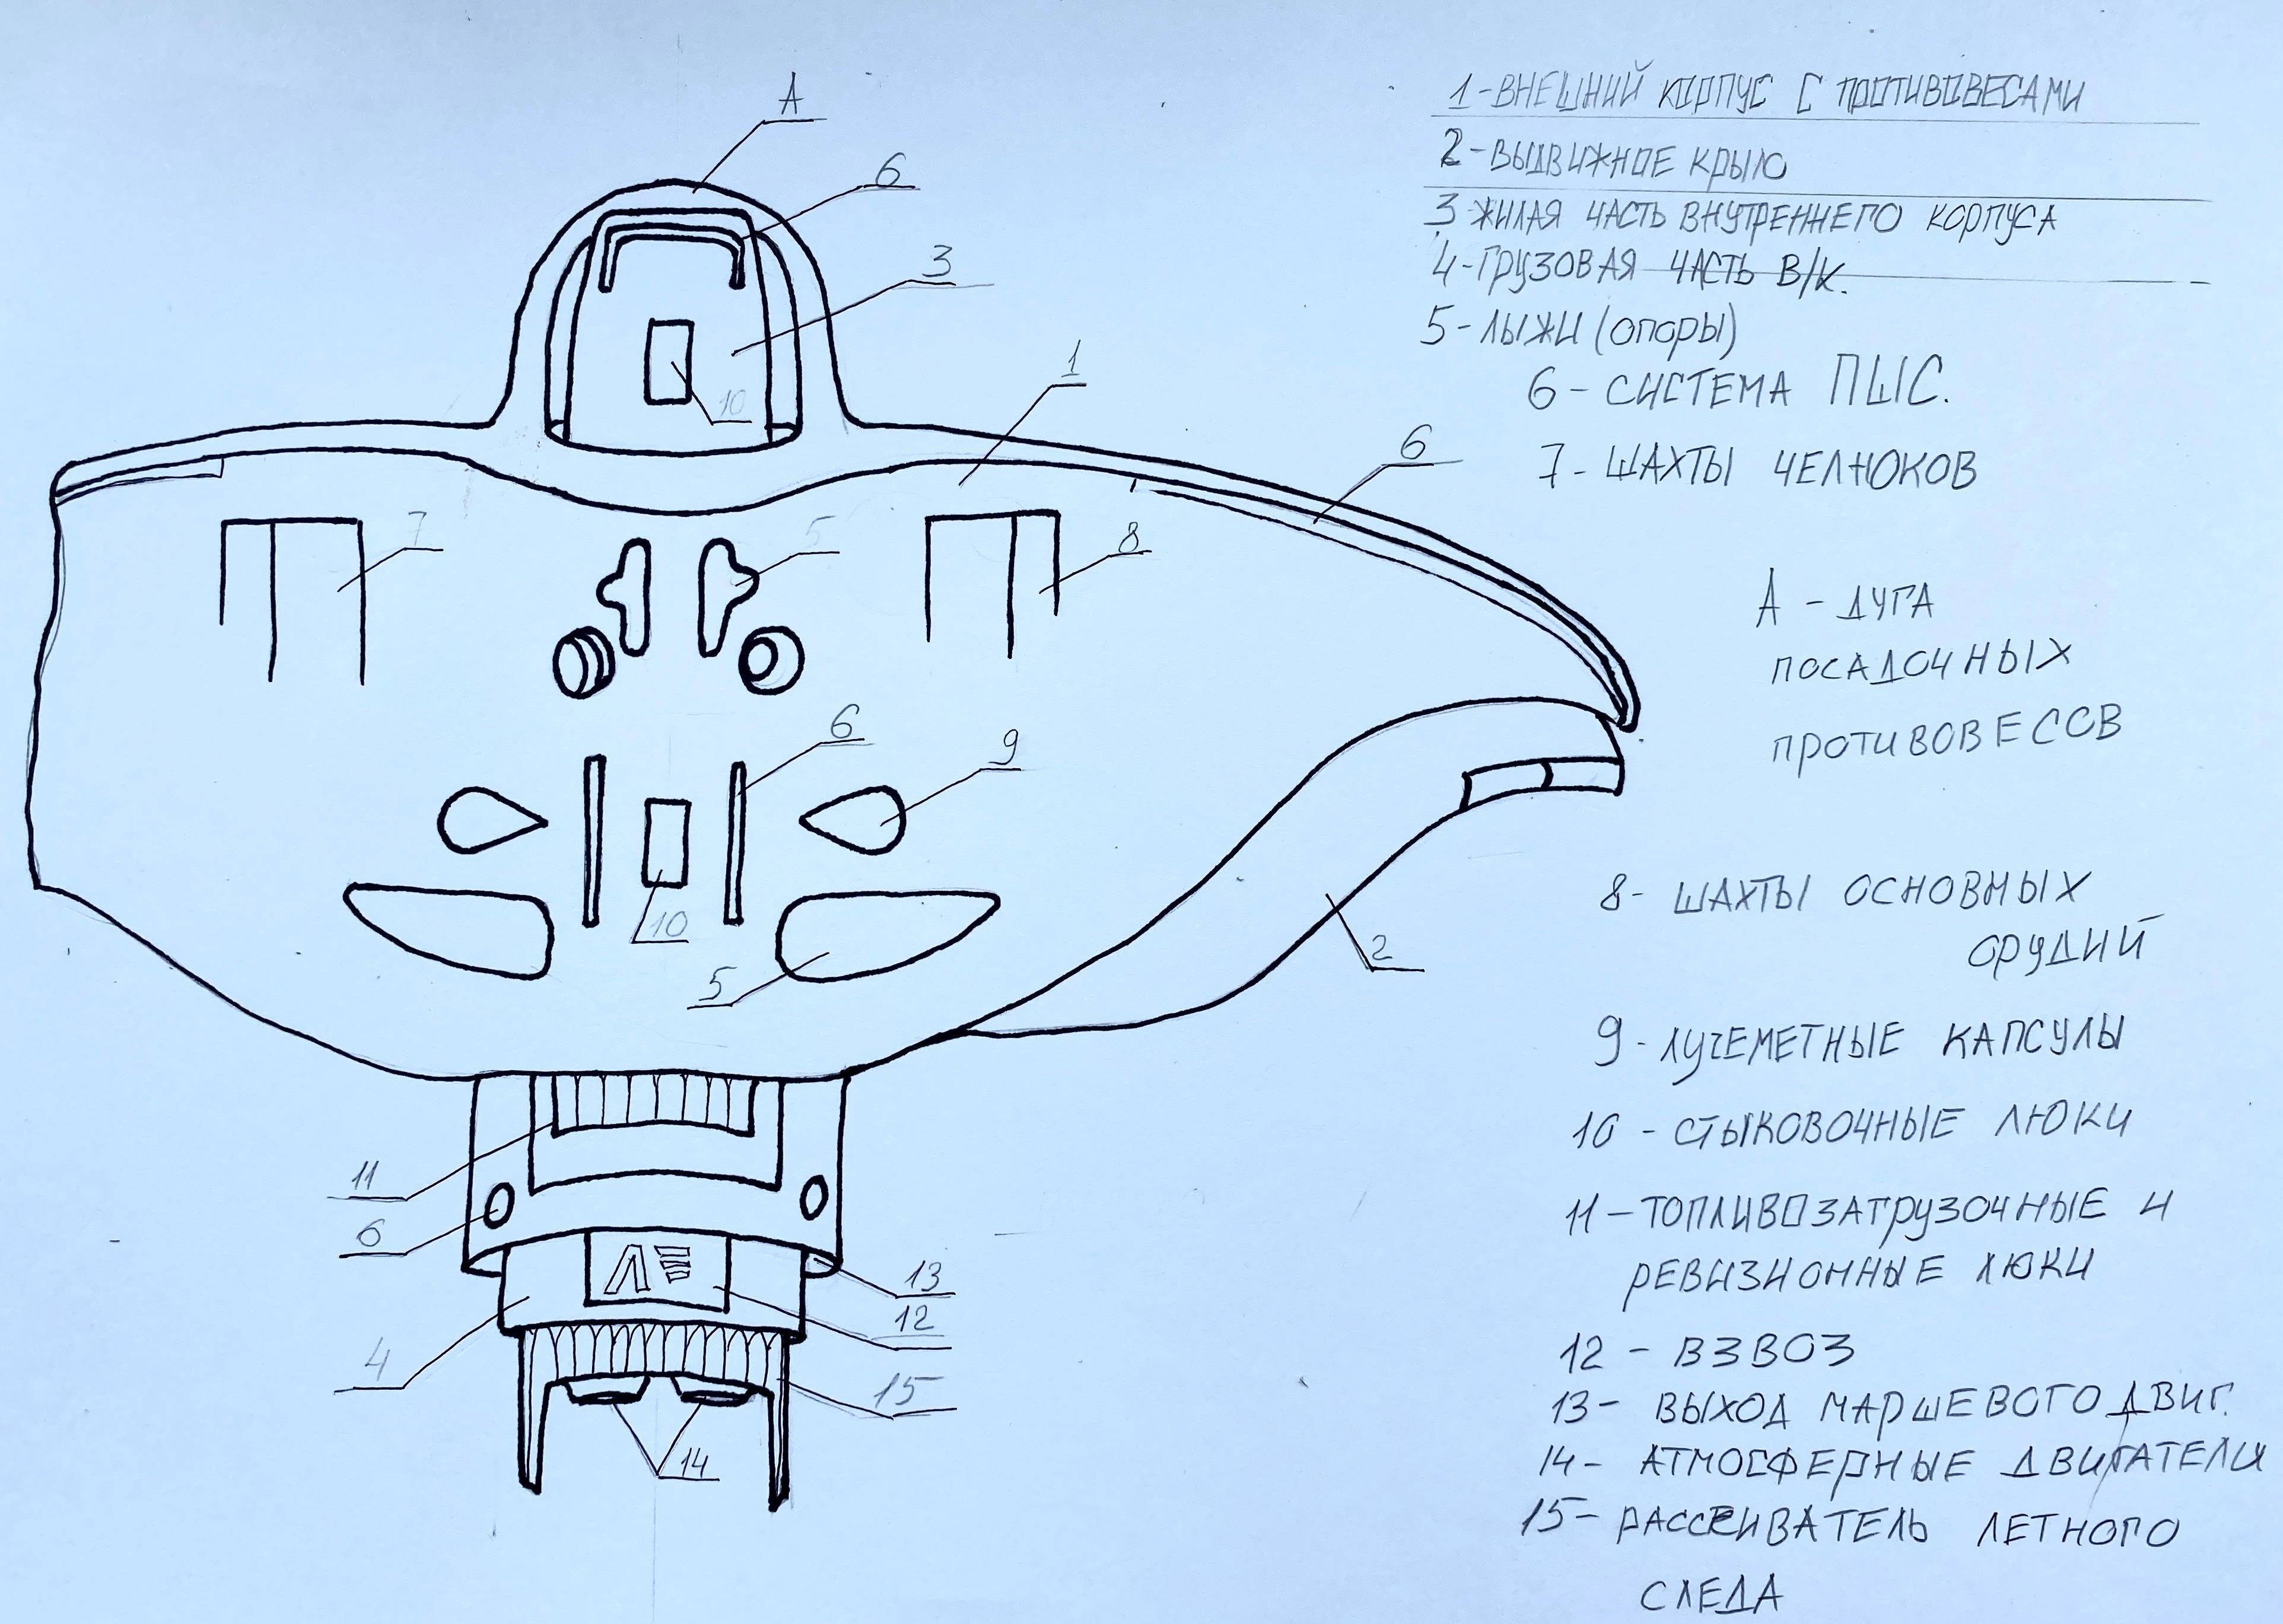 А
6
3
10
1
6
7
5
8
6
9
10
5
2
11
6
13
12
4
15
14
1-ВНЕШНИЙ КОРПУС С ПРОТИВОВЕСАМИ
2-ВЫДВИЖНОЕ КРЫЛО
3-ЖИЛАЯ ЧАСТЬ ВНУТРЕННЕГО КОРПУСА
4-ГРУЗОВАЯ ЧАСТЬ В/К.
5-ЛЫЖИ (ОПОРЫ)
6-СИСТЕМА ПШС.
7-ШАХТЫ ЧЕЛНОКОВ
А - ДУГА
ПОСАДОЧНЫХ
ПРОТИВОВЕСОВ
8-ШАХТЫ ОСНОВНЫХ
ОРУДИЙ
9-ЛУЧЕМЕТНЫЕ КАПСУЛЫ
10-СТЫКОВОЧНЫЕ ЛЮКИ
11-ТОПЛИВОЗАГРУЗОЧНЫЕ И
РЕВИЗИОННЫЕ ЛЮКИ
12-ВЗВОЗ
13-ВЫХОД МАРШЕВОГО ДВИГ.
14-АТМОСФЕРНЫЕ ДВИГАТЕЛИ
15-РАССЕИВАТЕЛЬ ЛЕТНОГО
СЛЕДА